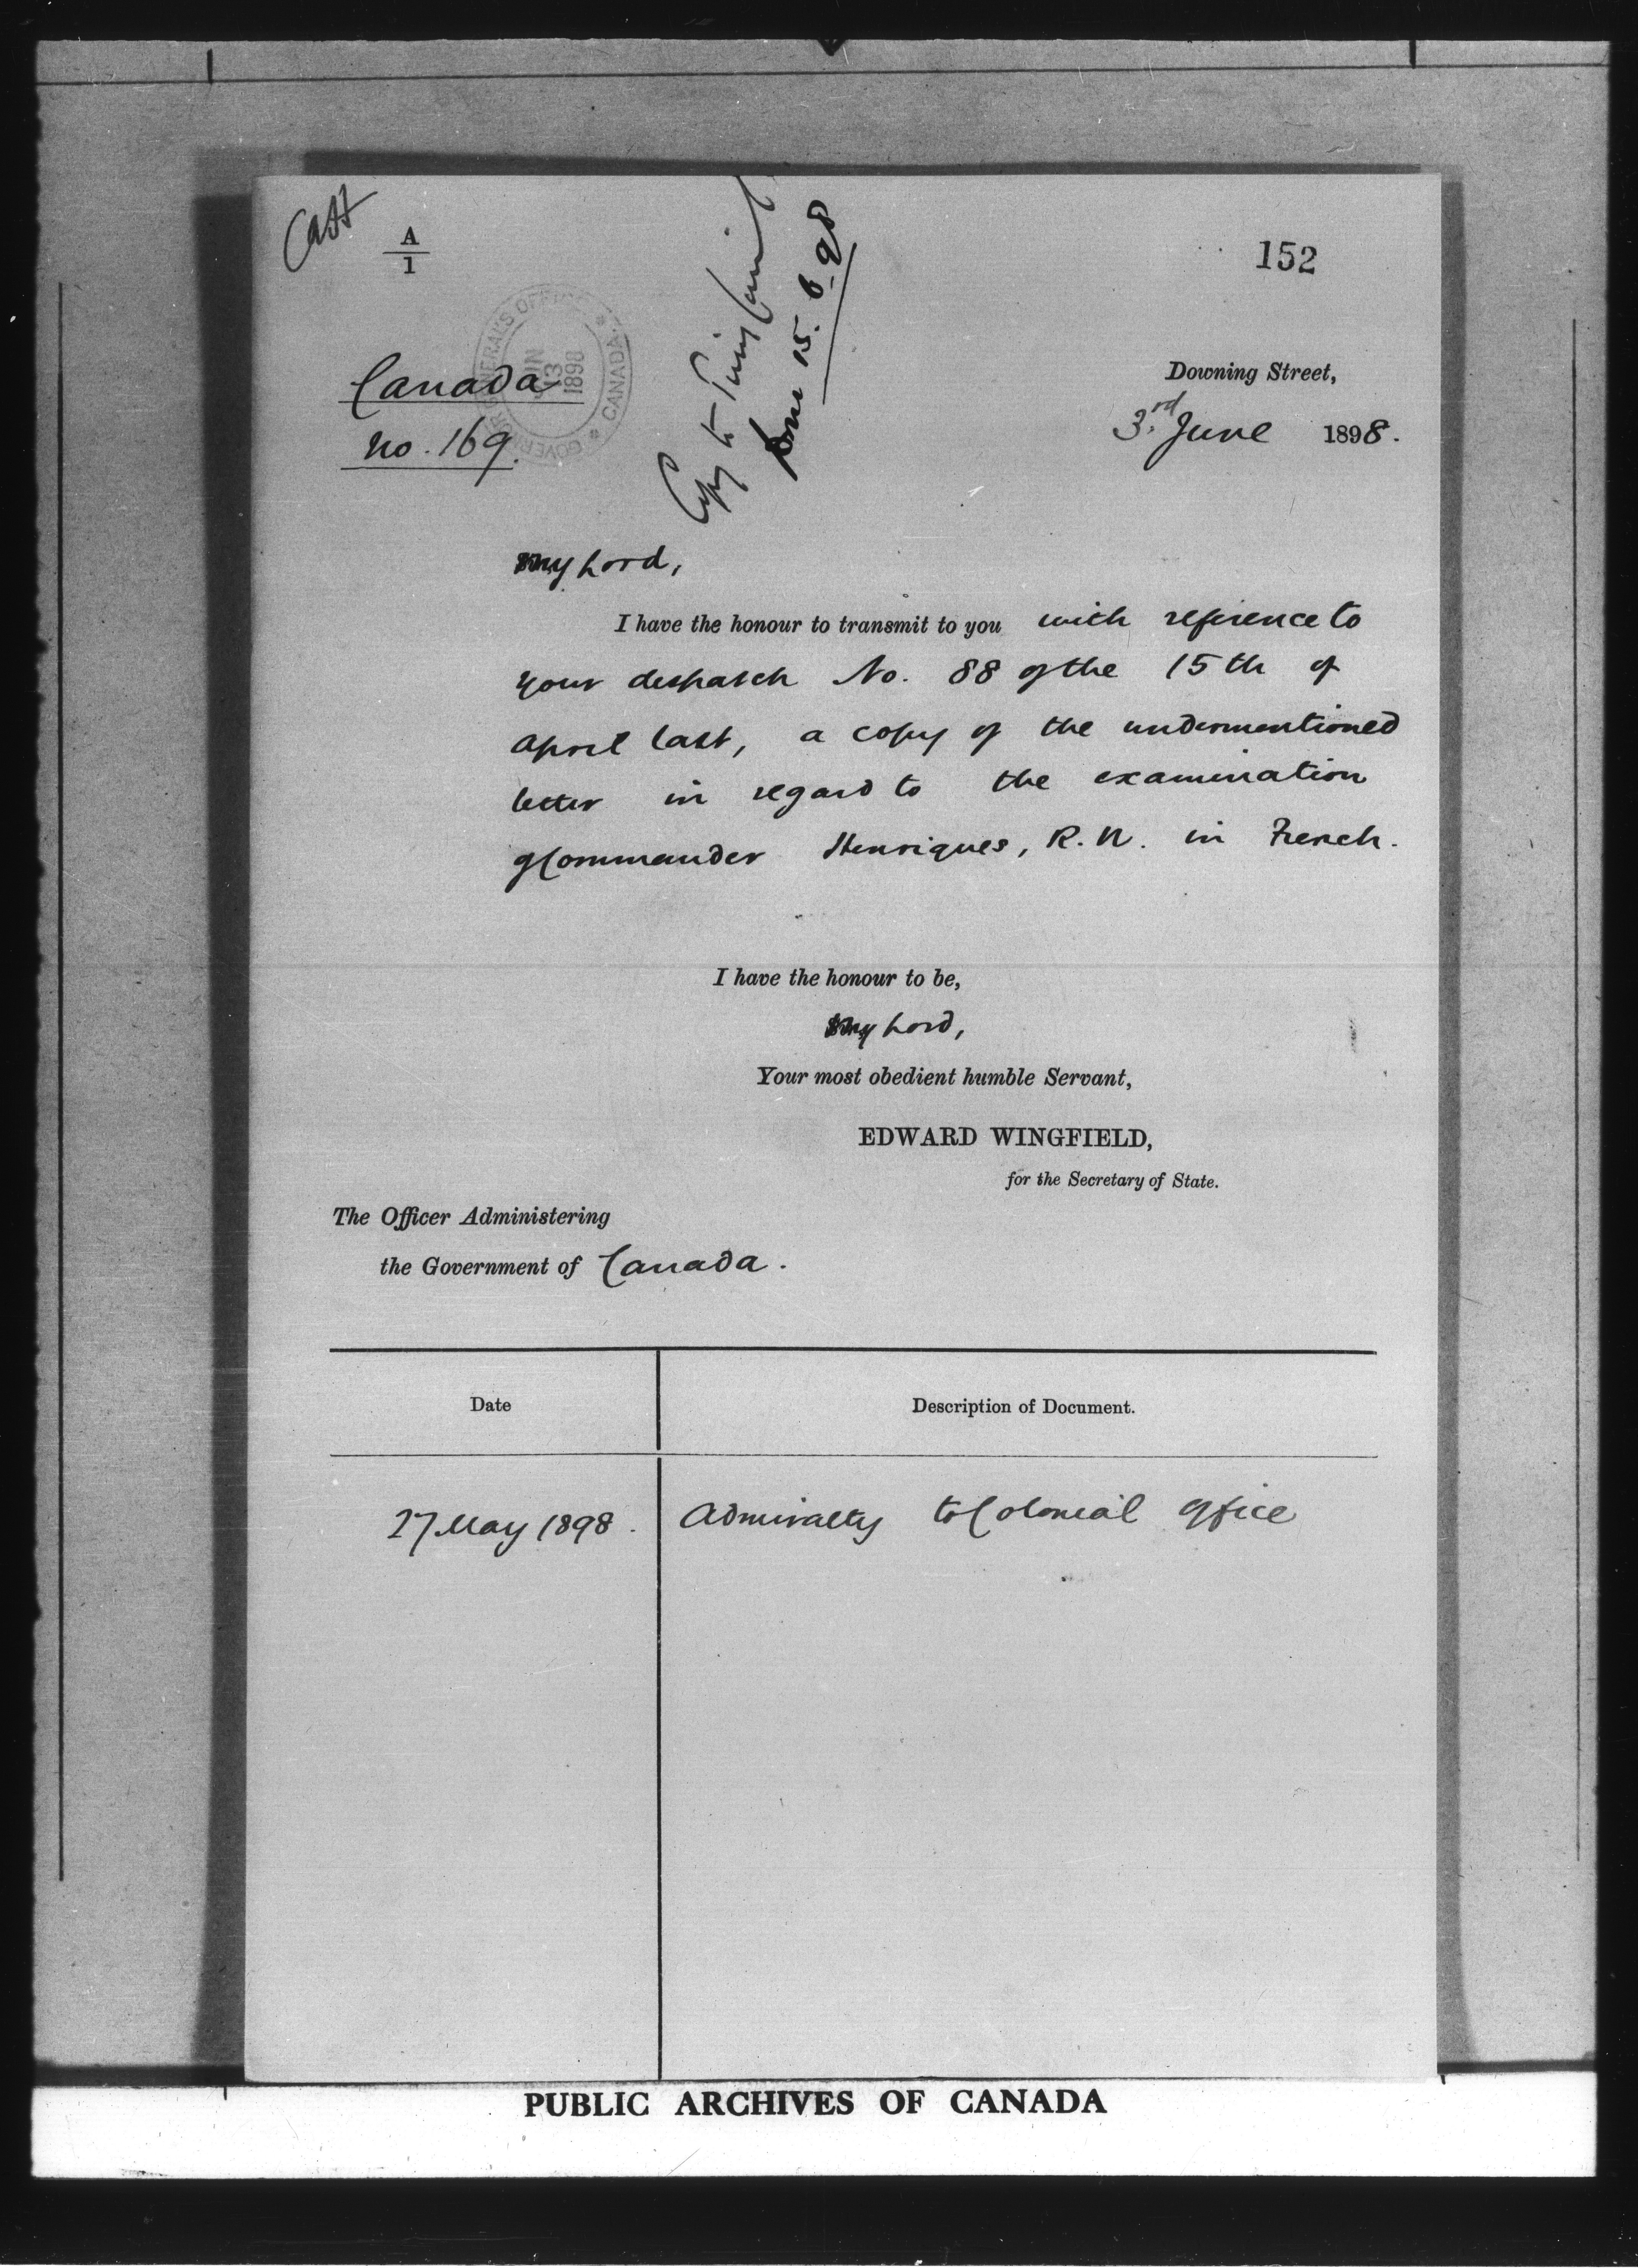 A
1
152
GOVERNOR GENERAL'S OFFICE * CANADA *
JUN
13
1898
Canada
No. 169.
Copy to
Done 15.6.98
Downing Street,
3rd June 1898.
My Lord,
I have the honour to transmit to you with reference to
your despatch No. 88 of the 15th of
April last, a copy of the undermentioned
letter in regard to the examination
of Commander Henriques, R.N. in French.
I have the honour to be,
My Lord,
Your most obedient humble Servant,
EDWARD WINGFIELD,
for the Secretary of State.
The Officer Administering
the Government of Canada.
Date
Description of Document.
27 May 1898.
Admiralty to Colonial Office
PUBLIC ARCHIVES OF CANADA